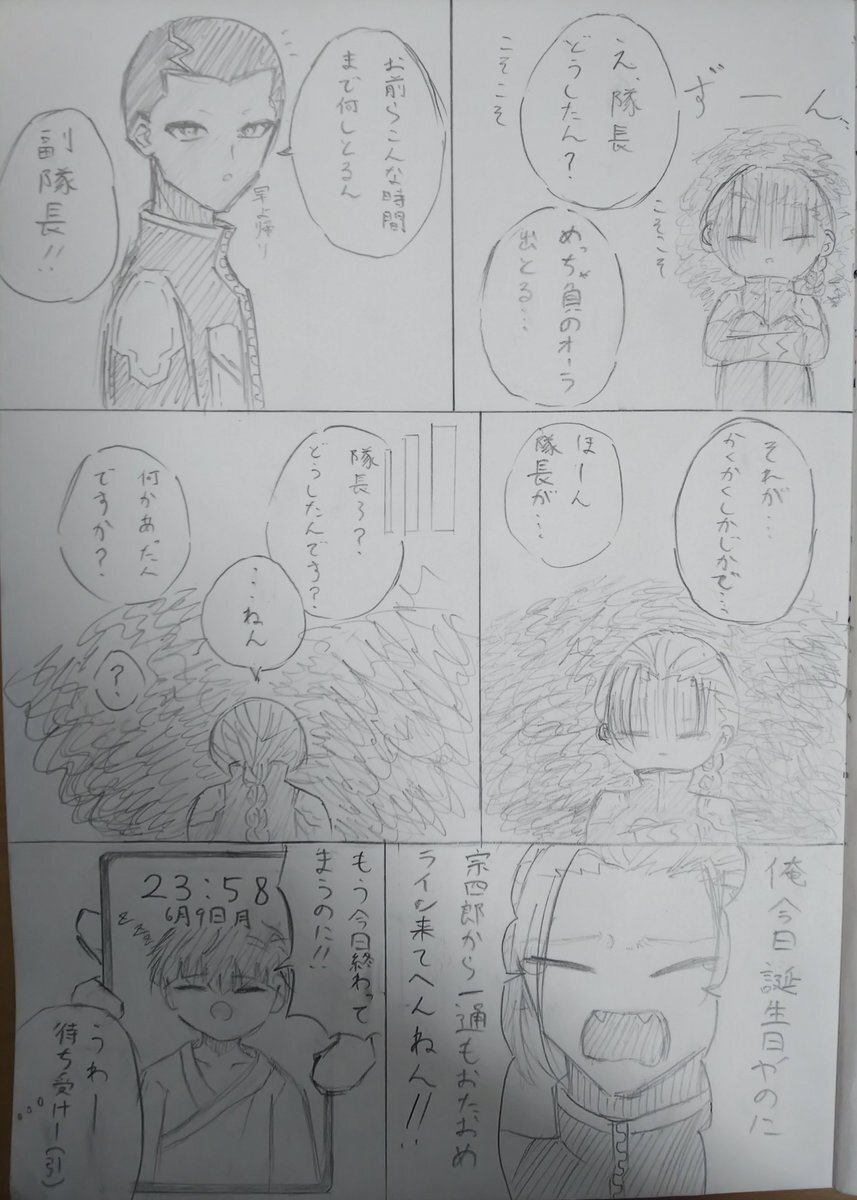 ずーん…
え、隊長
どうしたん?
こそこそ
こそこそ
めっちゃ負のオーラ
出とる…
お前らこんな時間
まで何しとるん
早よ帰り
副隊長!!
それが…
かくかくしかじかで…
ほーん
隊長が…
隊長ろ?
どうしたんです?
何かあったん
ですか?
…ねん
?
俺今日誕生日やのに
宗四郎から一通もおたおめ
ライン来てへんねん!!
もう今日終わって
まうのに!!
23:58
6月9日月
zzzz
うわー
待ち受けー(引)
...